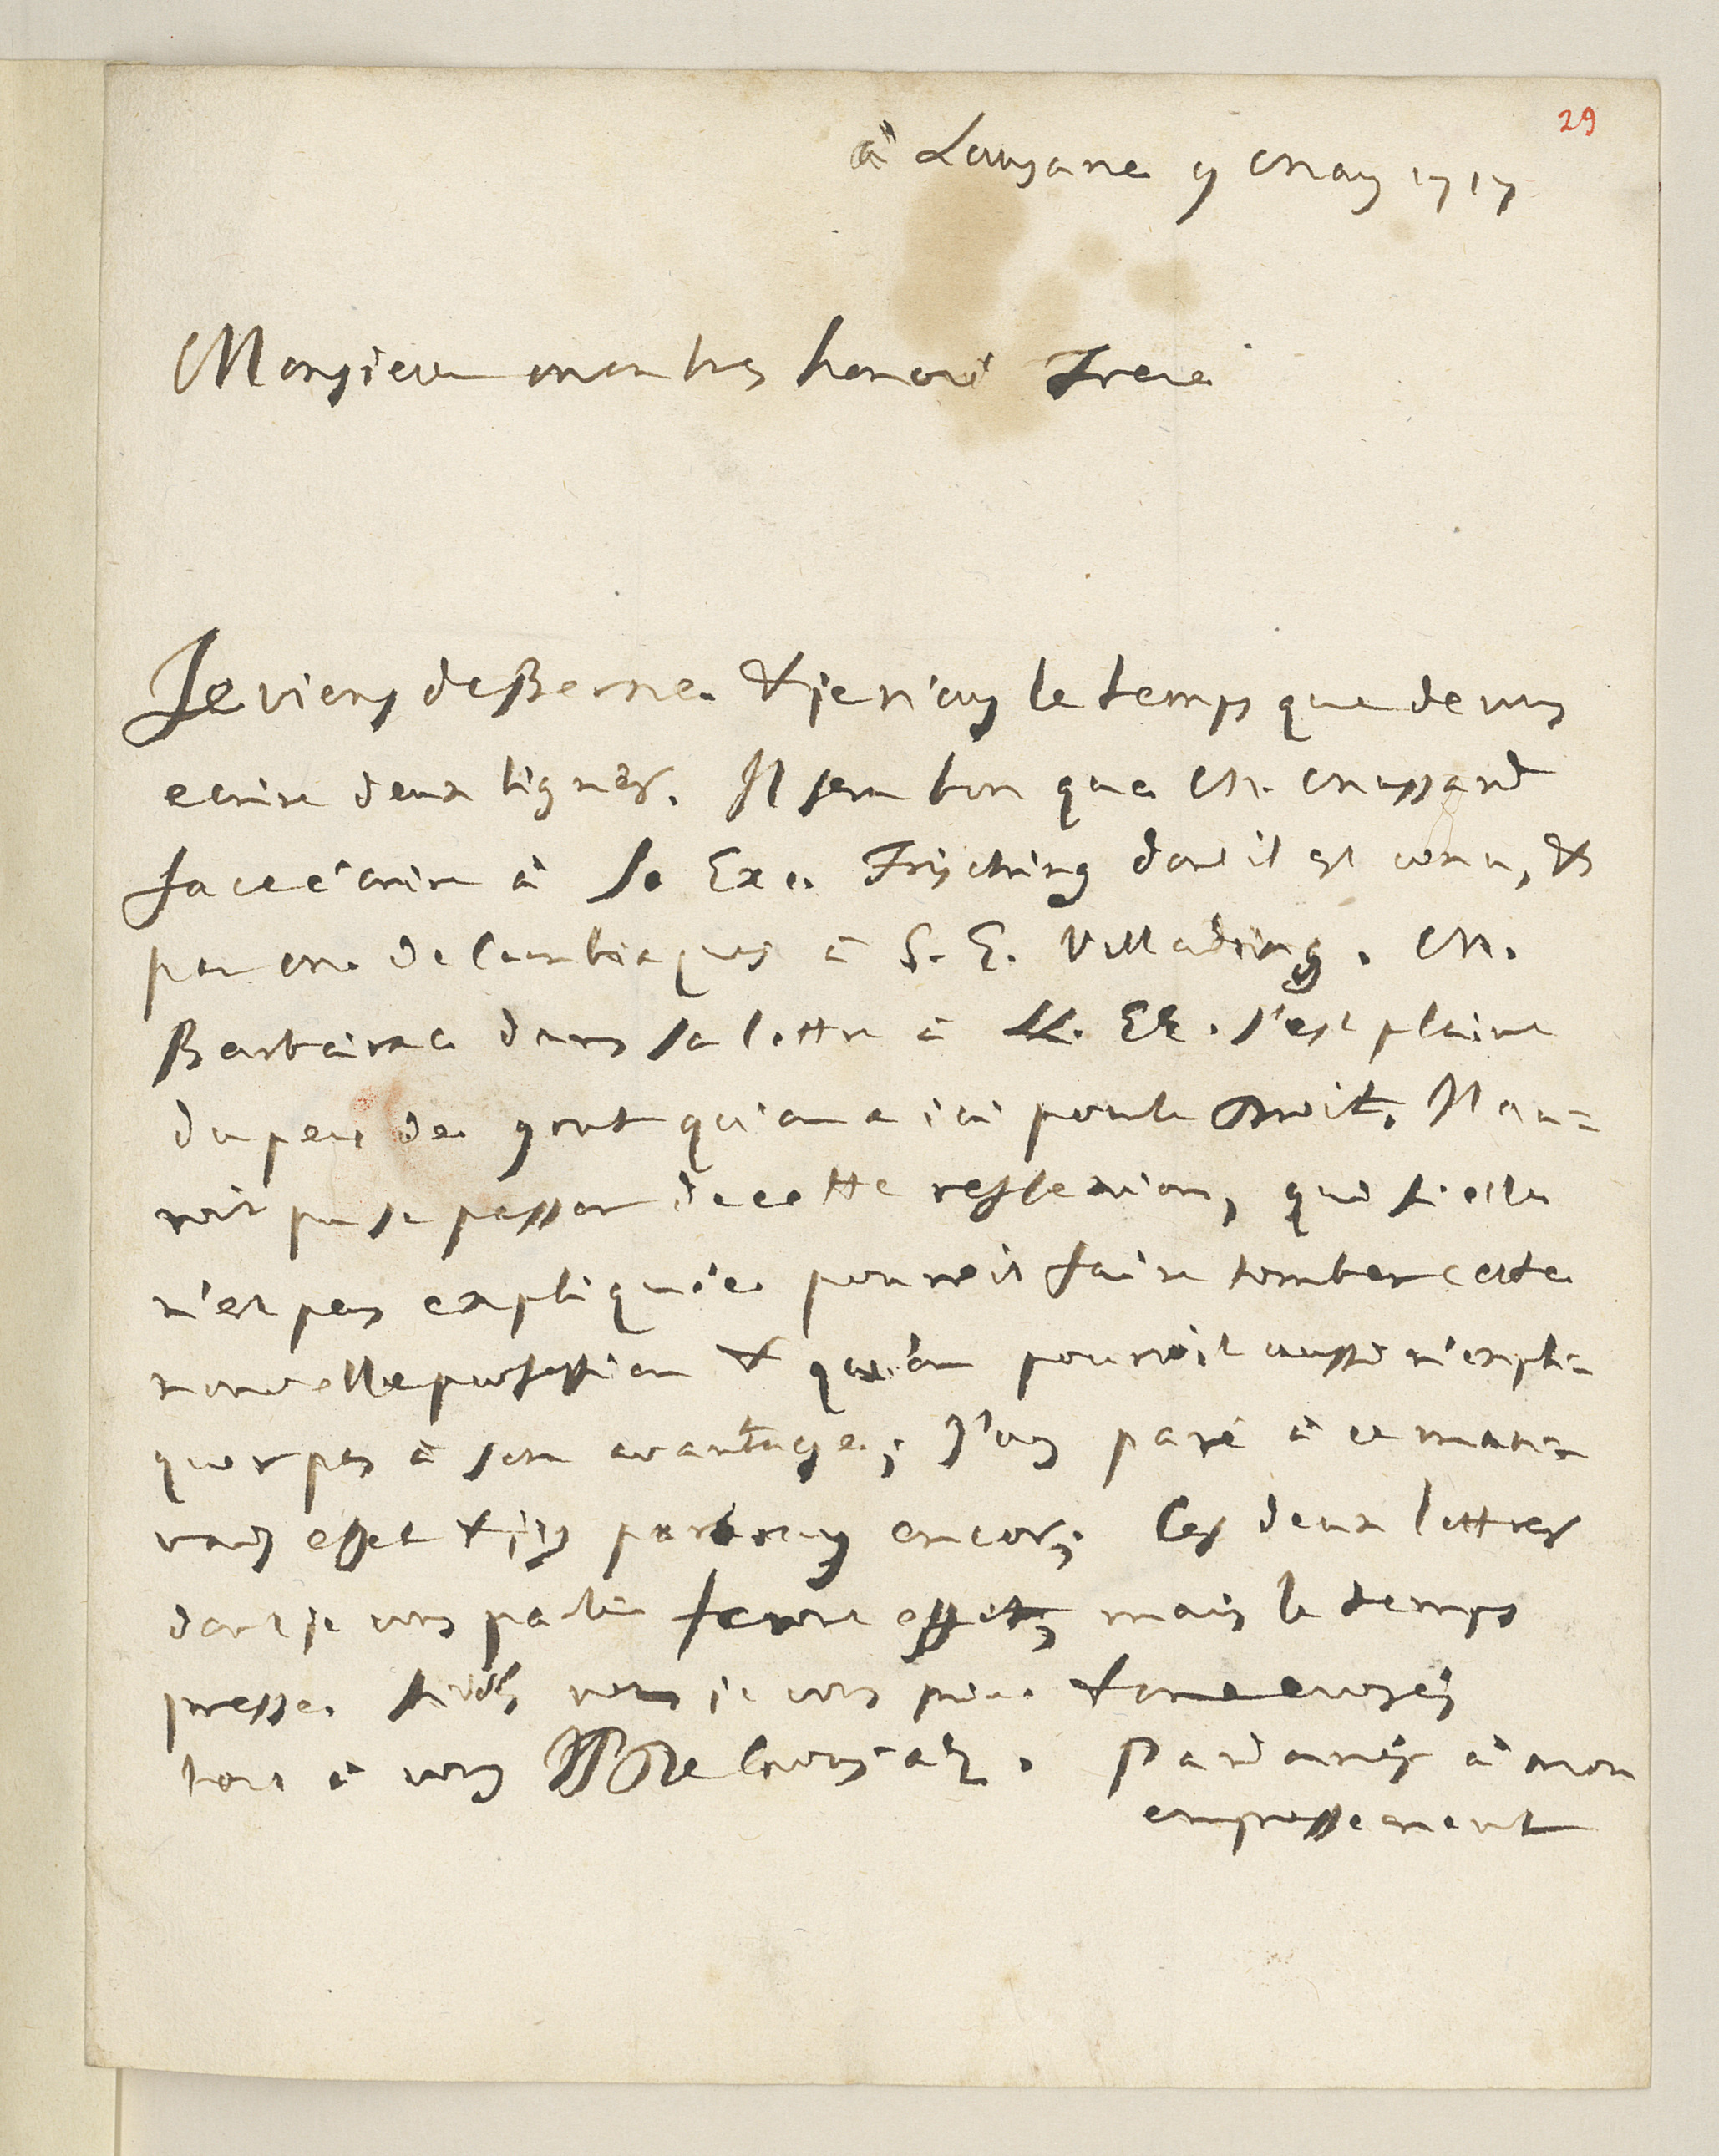 29
à Lausane 9 May 1717
Monsieur mon tres honoré Frere
Je viens de Berne & je n'ay le temps que de vous
ecrire deux lignes. Il sera bon que M. Mussard
face écrire à So Exe. Frisching dont il est conu, &
par Mr. de Caubiaques à S. E. Villading. M.
Barbeirac dans sa lettre à LL. EE. s'est plaint
du peu de gout qu'on a ici pour le droit, Il au=
roit pu se passer de cette reflexion, qui si elle
n'est pas expliquée pourroit faire tomber cette
nouvelle profession & qu'on pourroit aussi n'expli=
quer pas à son avantage; J'ay paré à ce mau=
vais effet & j'y pareray encor; Ces deux lettres
dont je vous parle feront effet, mais le temps
presse. vous je vous prie
tout à vous De Crousaz. Pardonnés à mon
empressement